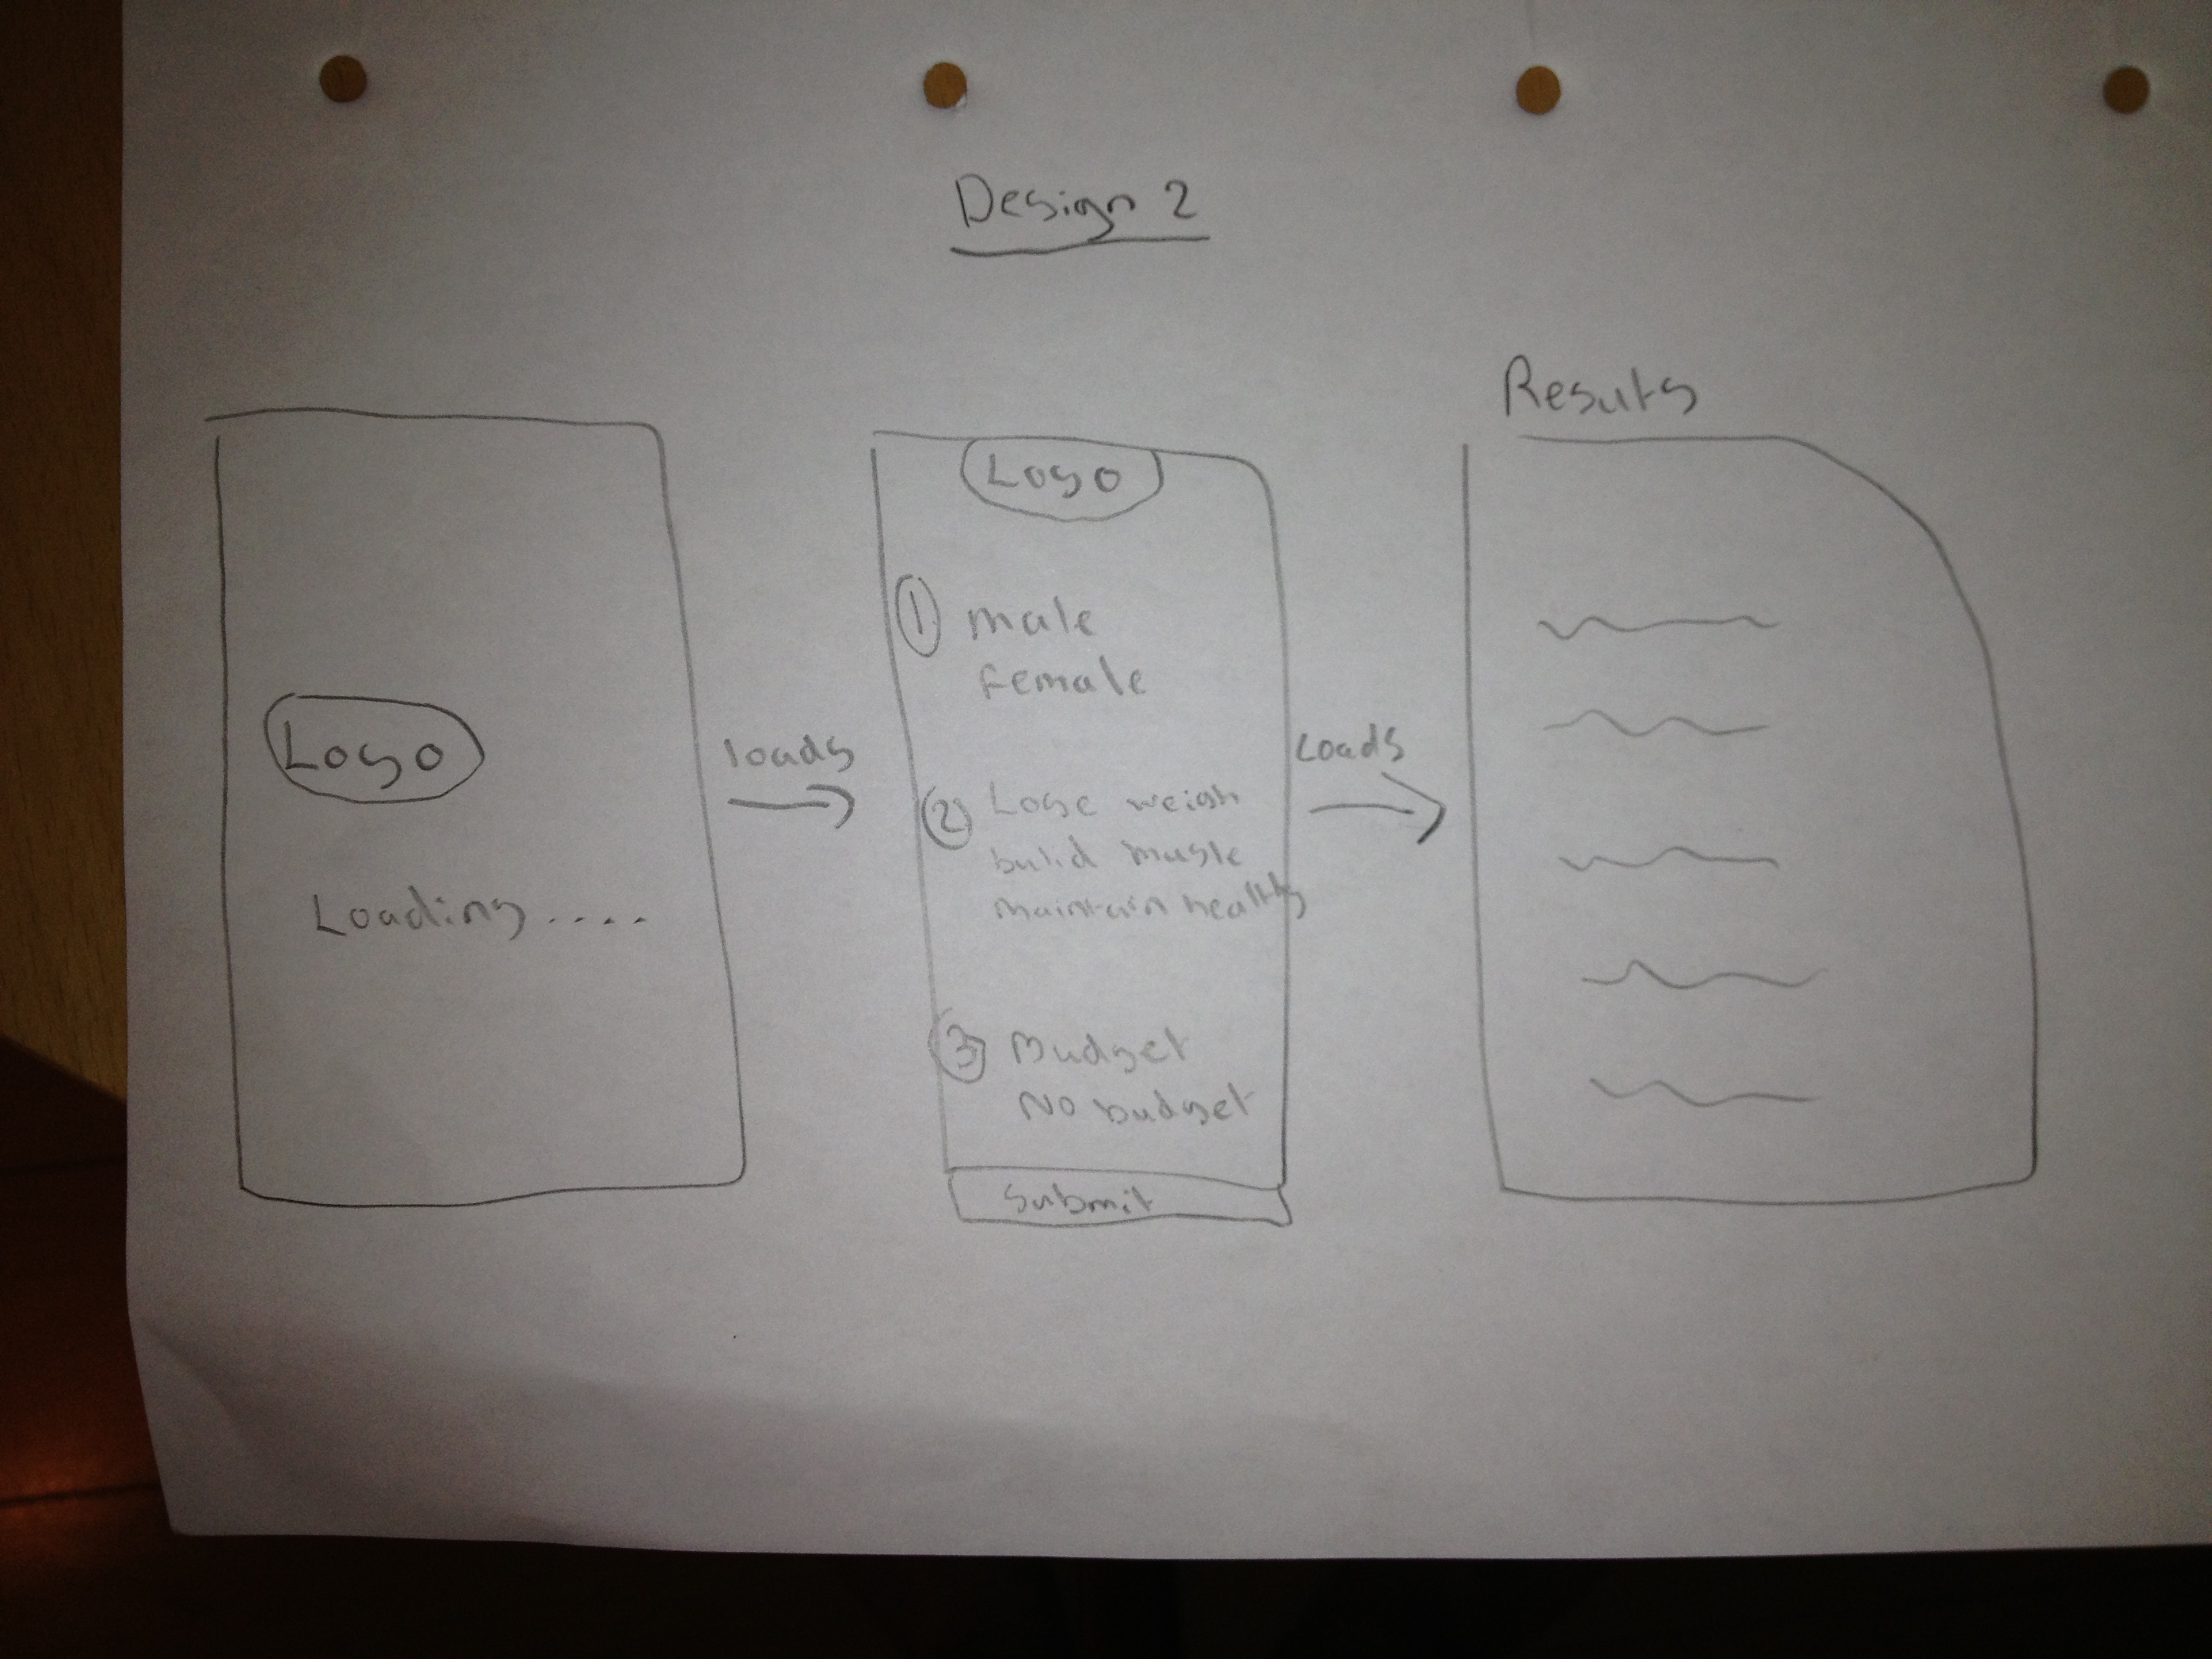 Design 2
Logo
Loading ....
loads
Logo
① male
Female
② Lose weigh
build musle
maintain healthy
③ Budget
No budget
submit
Loads
Results